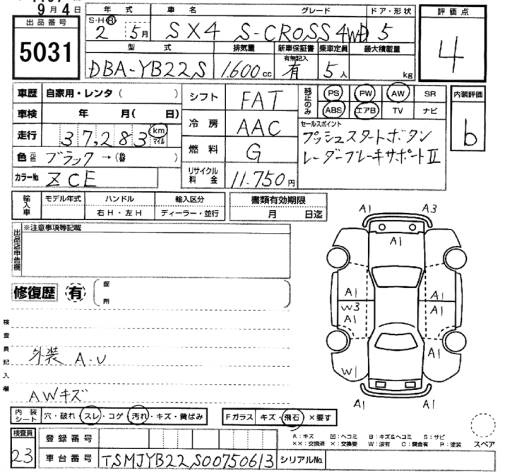 9月4日
出品番号
5031
年式 車名 グレード ドア・形状
S・H・R 2 5月 SX4 S-CROSS 4WD 5
型式 排気量 新車保証書 有無記入 乗車定員 最大積載量
DBA-YB22S 1,600cc 有 5人 kg
評価点
4
車歴 自家用・レンタ( )
車検 年 月( 日)
走行 37,283 km マイル
色 ブラック→(替)
カラーNo ZCE
シフト FAT
冷房 AAC
燃料 G
リサイクル料金 11.750円
PS PW AW SR
ABS エアB TV ナビ
セールスポイント
プッシュスタートボタン
レーダーブレーキサポートⅡ
内装評価
b
輸入車 モデル年式 ハンドル 輸入区分
年 右H・左H ディーラー・並行
書類有効期限
月 日迄
※注意事項等記載
修復歴 有
箇所
検査員記入欄
外装 A.U
AWキズ
A1 A3
A1
A1 A1
W3 A1
A1
W1 A1
A1 A1
内装シート 穴・破れ スレ・コゲ 汚れ・キズ・黄ばみ
Fガラス キズ・飛石 ×要す
検査員
23
登録番号
車台番号 TSMJYB22S00750613 シリアルNo.
A:キズ 凹:ヘコミ B:キズ&ヘコミ S:サビ
××:交換済 ×:要交換 W:波有 C:腐食有 P:塗装
スペア